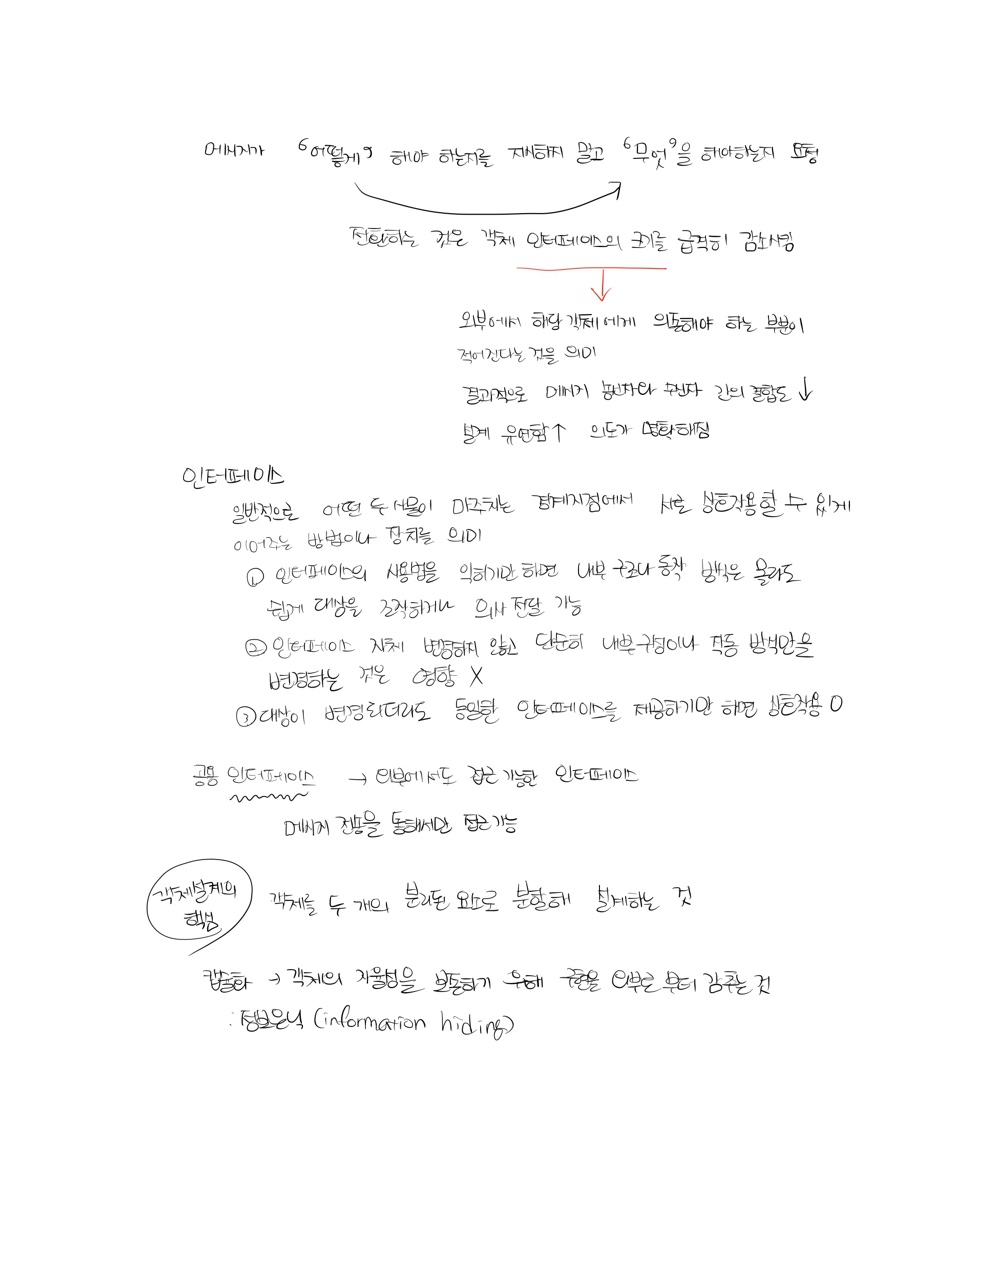 메시지가 '어떻게' 해야 하는지를 지시하지 말고 '무엇'을 해야하는지 요청
전환하는 것은 객체 인터페이스의 크기를 급격히 감소시킴
외부에서 해당 객체에게 의존해야 하는 부분이
적어진다는 것을 의미
결과적으로 메시지 송신자와 수신자 간의 결합도 ↓
설계 유연함 ↑ 의도가 명확해짐
인터페이스
일반적으로 어떤 두 사물이 마주치는 경계지점에서 서로 상호작용할 수 있게
이어주는 방법이나 장치를 의미
① 인터페이스의 사용법을 익히기만 하면 내부 구조나 동작 방식은 몰라도
쉽게 대상을 조작하거나 의사 전달 가능
② 인터페이스 자체 변경하지 않고 단순히 내부구성이나 작동 방식만을
변경하는 것은 영향 X
③ 대상이 변경되더라도 동일한 인터페이스를 제공하기만 하면 상호작용 O
공용 인터페이스 → 외부에서도 접근 가능한 인터페이스
메시지 전송을 통해서만 접근가능
객체설계의
핵심
객체를 두 개의 분리된 요소로 분할해 설계하는 것
캡슐화 → 객체의 자율성을 보존하기 위해 구현을 외부로 부터 감추는 것
: 정보은닉 (information hiding)